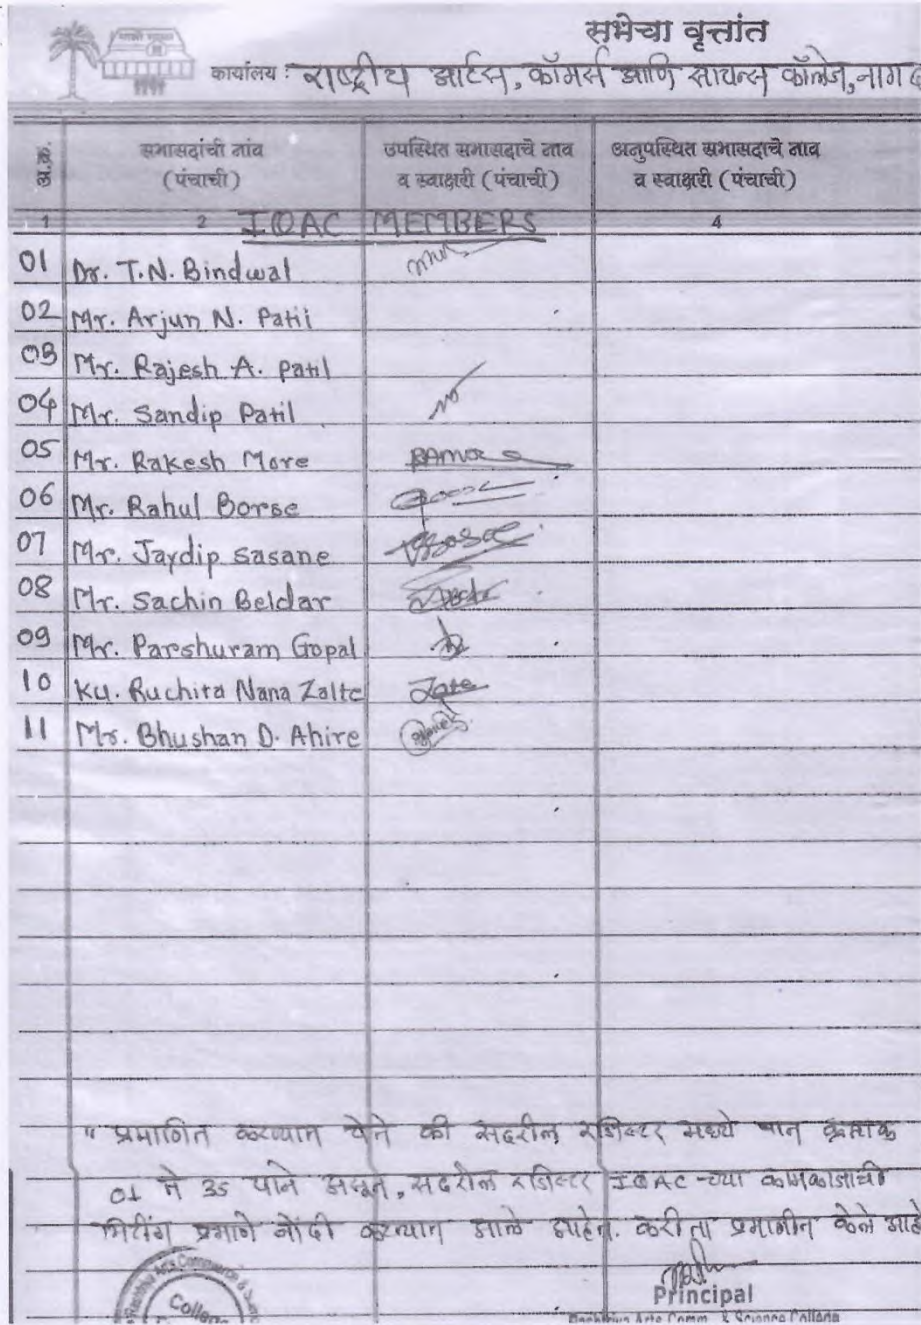 सभेचा वृत्तांत
कार्यालय : राष्ट्रीय आर्टस, कॉमर्स आणि सायन्स कॉलेज, नाग
अ.क्र. सभासदांची नांव (पंचाची) उपस्थित सभासदाचे नाव व स्वाक्षरी (पंचाची) अनुपस्थित सभासदाचे नाव व स्वाक्षरी (पंचाची)
1 2 IQAC MEMBERS 4
01 Dr. T.N. Bindwal
02 Mr. Arjun N. Patil
03 Mr. Rajesh A. Patil
04 Mr. Sandip Patil
05 Mr. Rakesh More
06 Mr. Rahul Borse
07 Mr. Jaydip Sasane
08 Mr. Sachin Beldar
09 Mr. Parshuram Gopal
10 Ku. Ruchita Nana Zalte
11 Mr. Bhushan D. Ahire
" प्रमाणित करण्यात येते की सदरील रजिस्टर मध्ये पान क्रमांक
01 ते 35 पाने असून, सदरील रजिस्टर IQAC -च्या कामकाजाची
मिटींग प्रमाणे नोंदी करण्यात आले आहेत. करीता प्रमाणीत केले आहे
Principal
Rashtriya Arts Comm. & Science College
College